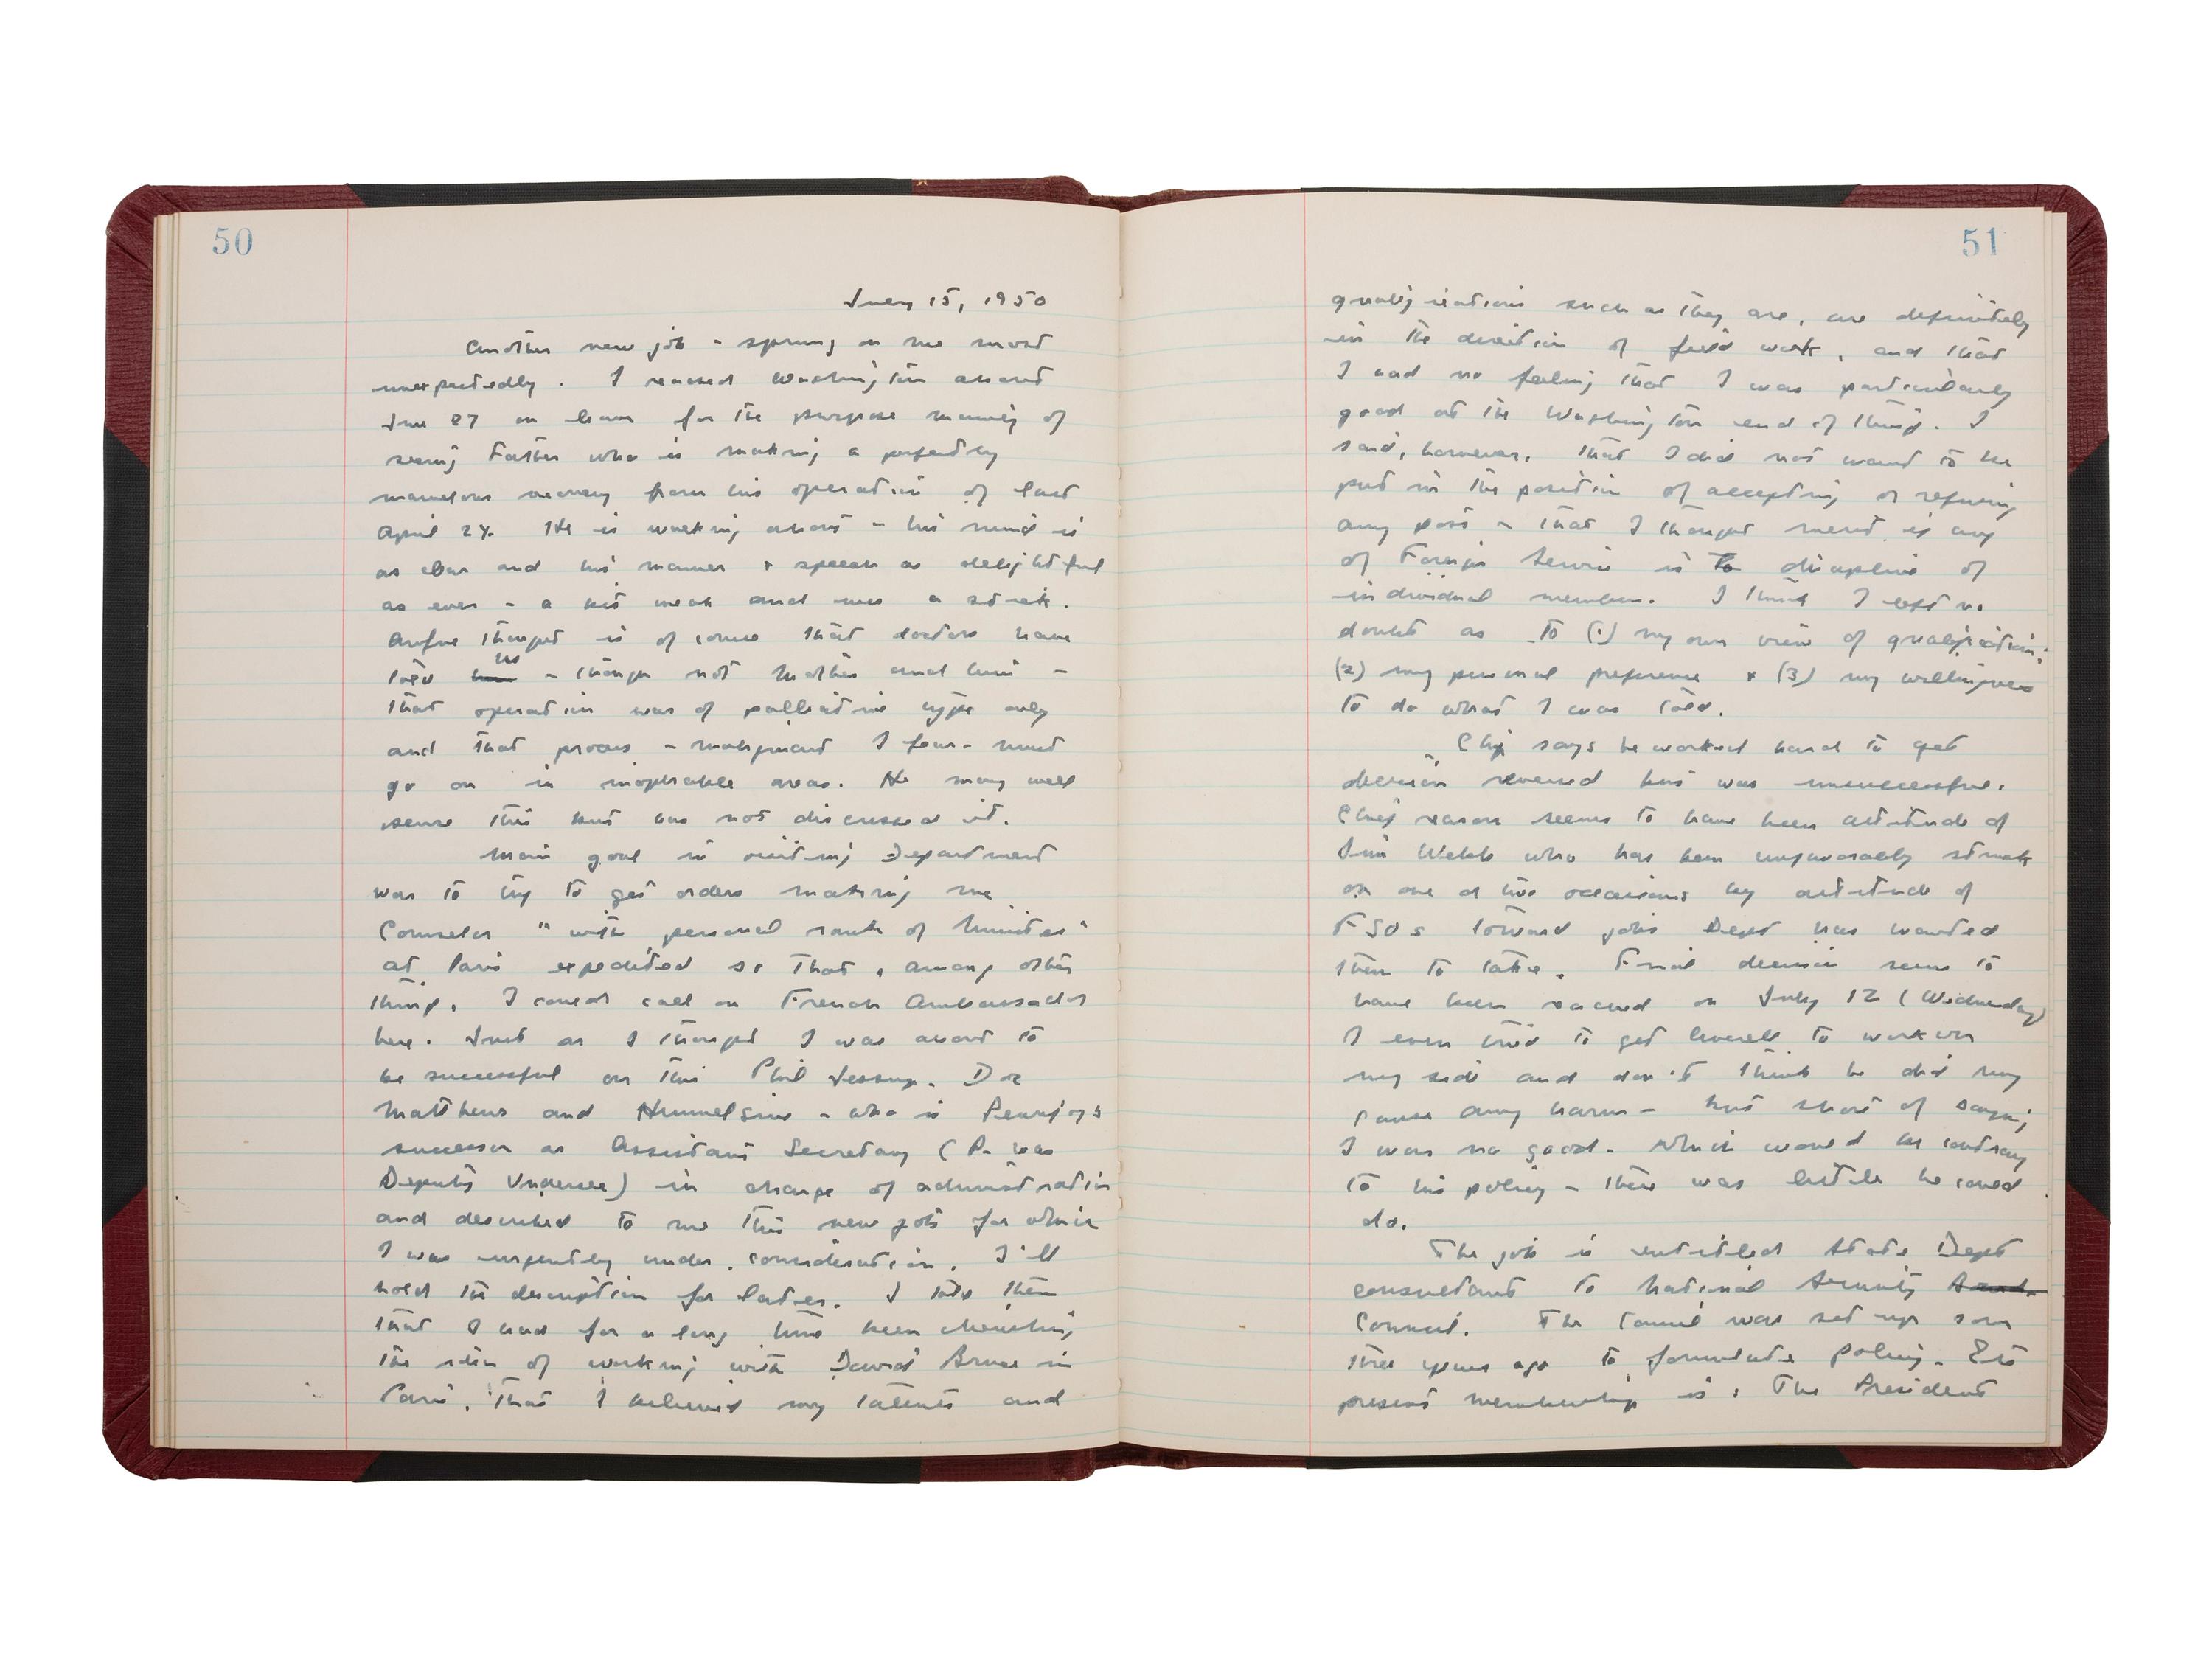 50
July 15, 1950
Another new job - sprung on me most
unexpectedly. I reached Washington about
June 27 on leave for the purpose mainly of
seeing Father who is making a perfectly
marvelous recovery from his operation of last
April 24. He is walking about - his mind is
as clear and his manner + speech as delightful
as ever - a bit weak and uses a stick.
Awful thought is of course that doctors have
told him us - though not Mother and him -
that operation was of palliative type only
and that process - malignant I fear - must
go on in inoperable areas. He may well
sense this but has not discussed it.
Main goal in visiting Department
was to try to get orders making me
Counselor "with personal rank of Minister"
at Paris expedited so that, among other
things, I could call on French Ambassador
here. Just as I thought I was about to
be successful on this Phil Jessup, Doc
Matthews and Hummelsine - who is Peurifoy's
successor as Assistant Secretary (P. was
Deputy Undersec) in charge of administration
and described to me this new job for which
I was urgently under consideration. I'll
hold the description for later. I told them
that I had for a long time been cherishing
the idea of working with David Bruce in
Paris, that I believed my talents and
51
qualifications such as they are, are definitely
in the direction of field work, and that
I had no feeling that I was particularly
good at the Washington end of things. I
said, however, that I did not want to be
put in the position of accepting or refusing
any post - that I thought merit if any
of Foreign Service is to discipline of
individual members. I think I left no
doubt as to (1) my own view of qualifications;
(2) my personal preference + (3) my willingness
to do what I was told.
Chip says he worked hard to get
decision reversed but was unsuccessful.
Chief reason seems to have been attitude of
Jim Webb who has been unfavorably struck
on one or two occasions by attitude of
FSOs toward jobs Dept has wanted
them to take. Final decision seems to
have been reached on July 12 (Wednesday)
I even tried to get Averell to work on
my side and don't think he did my
cause any harm - but short of saying
I was no good - which would be contrary
to his policy - there was little he could
do.
The job is entitled State Dept
consultant to National Security
Council. The Council was set up some
three years ago to formulate policy. Its
present membership is: The President